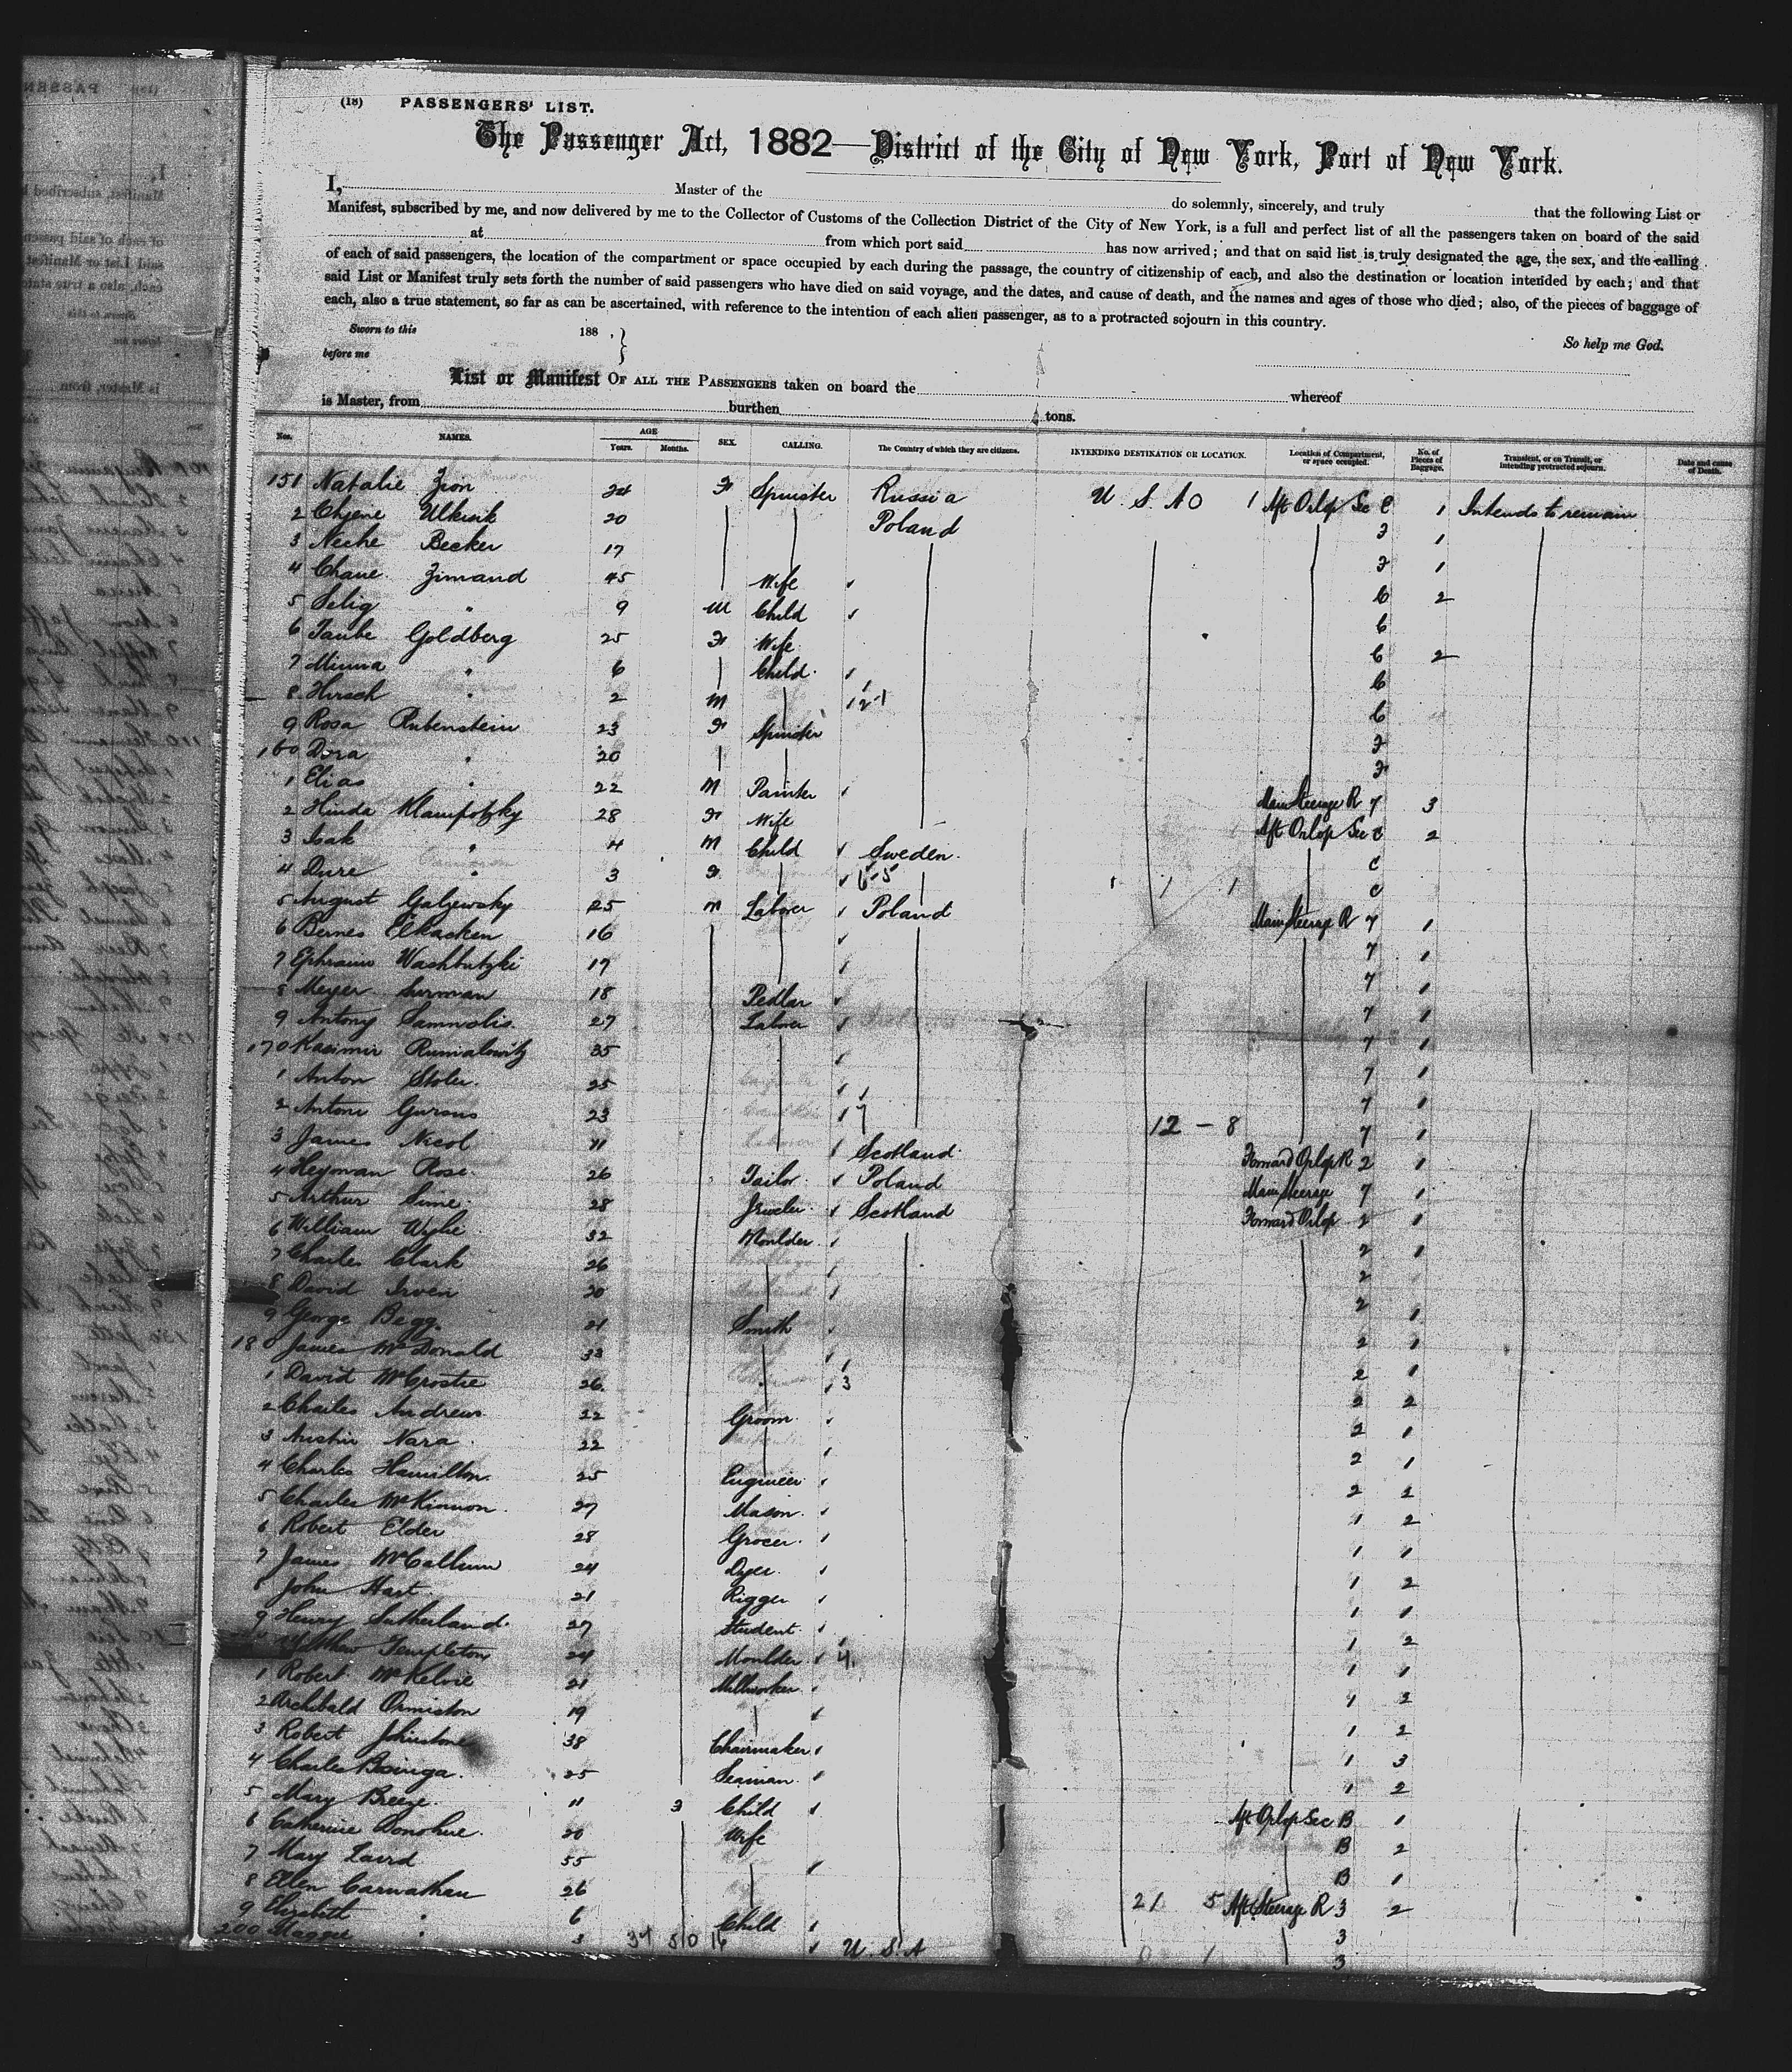 (18) PASSENGERS' LIST.
The Passenger Act, 1882—District of the City of New York, Port of New York.
I, Master of the do solemnly, sincerely, and truly that the following List or
Manifest, subscribed by me, and now delivered by me to the Collector of Customs of the Collection District of the City of New York, is a full and perfect list of all the passengers taken on board of the said
at from which port said has now arrived; and that on said list is truly designated the age, the sex, and the calling
of each of said passengers, the location of the compartment or space occupied by each during the passage, the country of citizenship of each, and also the destination or location intended by each; and that
said List or Manifest truly sets forth the number of said passengers who have died on said voyage, and the dates, and cause of death, and the names and ages of those who died; also, of the pieces of baggage of
each, also a true statement, so far as can be ascertained, with reference to the intention of each alien passenger, as to a protracted sojourn in this country.
Sworn to this 188 , So help me God.
before me
List or Manifest OF ALL THE PASSENGERS taken on board the whereof
is Master, from burthen tons.
Nos. NAMES. AGE Years. Months. SEX. CALLING. The Country of which they are citizens. INTENDING DESTINATION OR LOCATION. Location of Compartment, or space occupied. No. of Pieces of Baggage. Transient, or in Transit, or intending protracted sojourn. Date and cause of Death.
151 Natalie Zion 24 F Spinster Russia U. S. A 0 1 Aft Orlop Sec C 1 Intends to remain
2 Chyene 20 Poland 1
3 Neche Becker 17 1
4 Chane Zimand 45 Wife 2
5 Selig " 9 M Child
6 Taube Goldberg 25 F Wife 2
7 Minna " 6 Child
8 Hirsch " 2 M
9 Rosa Rubenstein 23 F Spinster
160 Dora " 20
1 Elias " 22 M Painter Main Steerage R 7 3
2 Hinda Klampotzky 28 F Wife Aft Orlop Sec C 2
3 Isak " 4 M Child Sweden C
4 Dure " 3 F C
5 August Galzewsky 25 M Laborer Poland Main Steerage R 7 1
6 Bernes Elkachen 16 7 1
7 Ephraim Washbutzki 17 7 1
8 Meyer Surman 18 Pedlar 7 1
9 Antony Samwolis 27 Laborer 7 1
170 Kasimir 35 7 1
1 Anton Stoler 25 7 1
2 Antoni Gursus 23 12 - 8 7 1
3 James Nicol 11 Scotland Forward Orlop R 2 1
4 Heyman Rose 26 Tailor Poland Main Steerage 7 1
5 Arthur Sime 28 Jeweler Scotland Forward Orlop 2 1
6 William Wylie 32 Moulder 2 1
7 Charles Clark 26 2
8 David Irven 20 2 1
9 George Begg 21 Smith 2 1
180 James McDonald 33 2 1
1 David McCrostie 26 3 2 2
2 Charles Andrews 22 Groom 2 1
3 Austin Nara 22 2 1
4 Charles Hamilton 25 Engineer 2 2
5 Charles McKinnon 27 Mason 1 2
6 Robert Elder 28 Grocer 1 1
7 James McCallum 24 Dyer 1 2
8 John Hart 21 Rigger 1 1
9 Henry Sutherland 27 Student 1 2
Templeton 24 Moulder 4 1 1
1 Robert McKelvie 21 Millworker 1 2
2 Archibald Ormiston 19 1 2
3 Robert Johnstone 38 Chairmaker 1 3
4 Charles 25 Seaman 1 2
5 Mary Breeze 11 3 Child Aft Orlop Sec B 1
6 Catherine Donohue 20 Wife B 2
7 Mary Laird 55 B 1
8 Ellen Carnathan 26 21 5 Aft Steerage R 3 2
9 Elizabeth " 6 Child 3
200 Maggie " 3 34 50 16 U. S. A 3